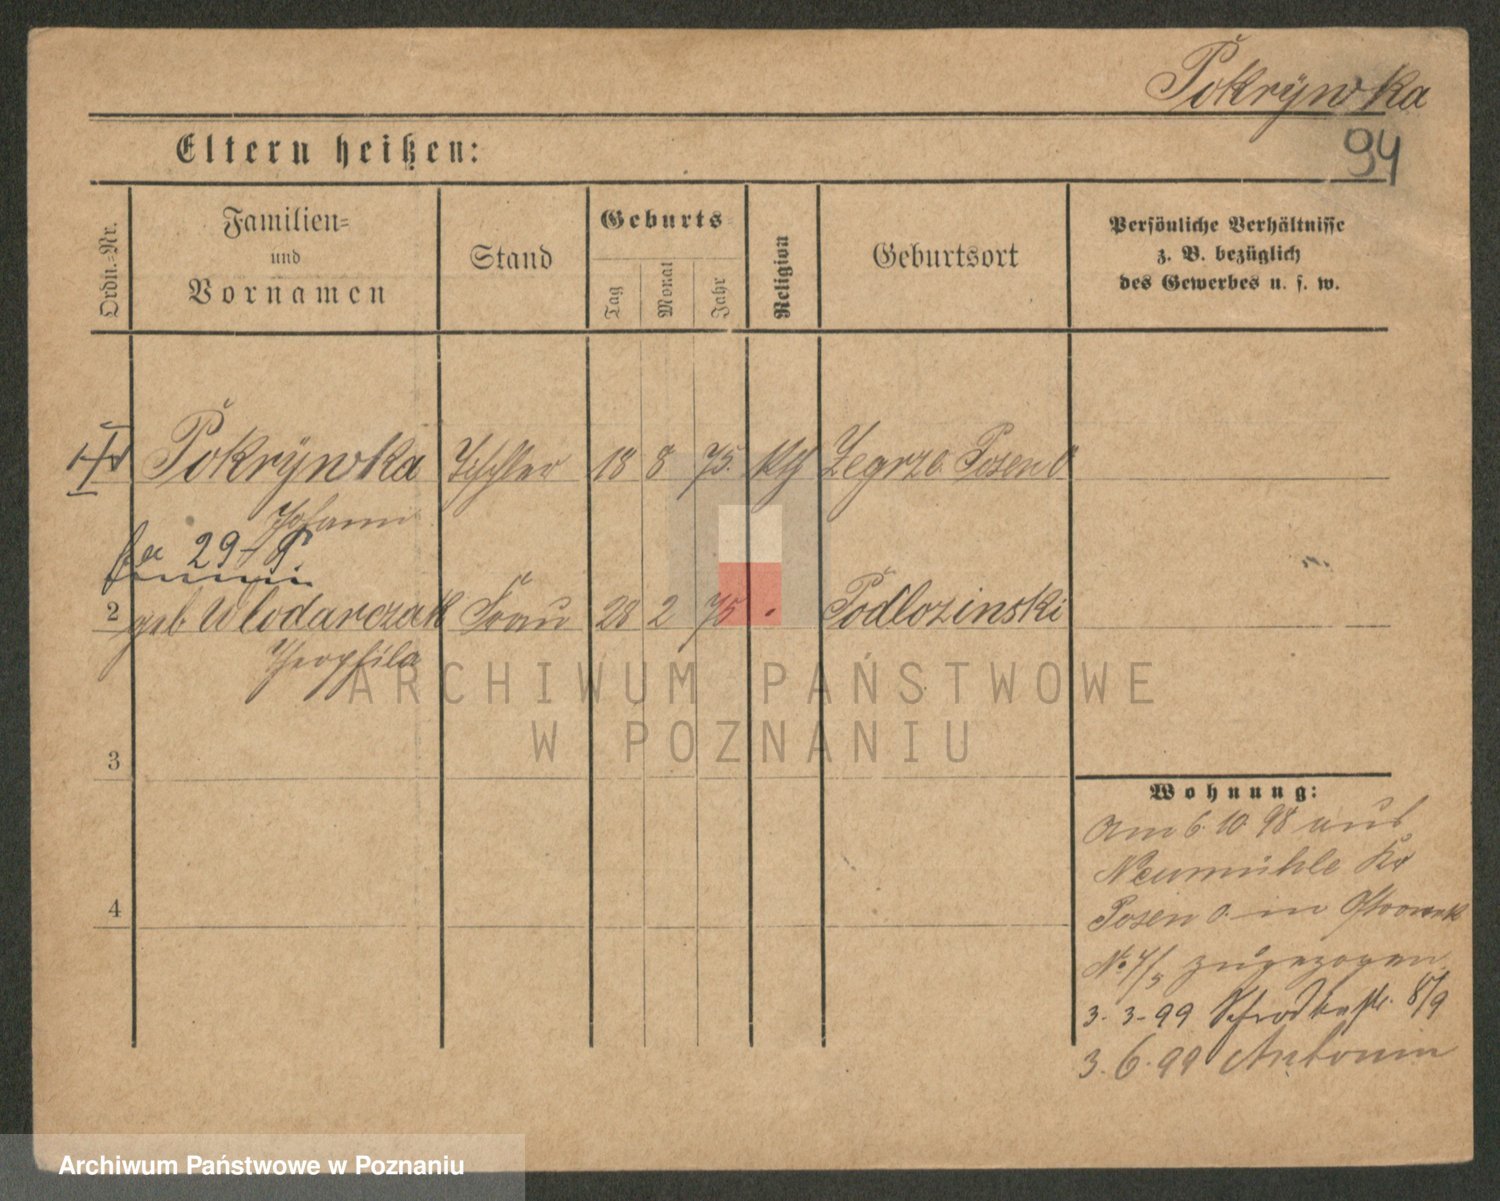 Pokrÿwka
94
Eltern heißen:
Ordn.-Nr.
Familien-
und
Vornamen
Stand
Geburts-
Tag
Monat
Jahr
Religion
Geburtsort
Persönliche Verhältnisse
z. B. bezüglich
des Gewerbes u. s. w.
Pokrÿwka Tischler 18 8 75. kth Zegrze Posen O
Johann
29
2 geb. Wlodarczak Frau 28 2 75 Podlozinski
Theophila
3
4
Wohnung:
Am 6. 10. 98 aus
Neumühle Kr
Posen O. in
No 4/5 zugezogen
3. 3. 99 Schrodkastr. 8/9
3. 6. 99 Antonin
ARCHIWUM PAŃSTWOWE
W POZNANIU
Archiwum Państwowe w Poznaniu